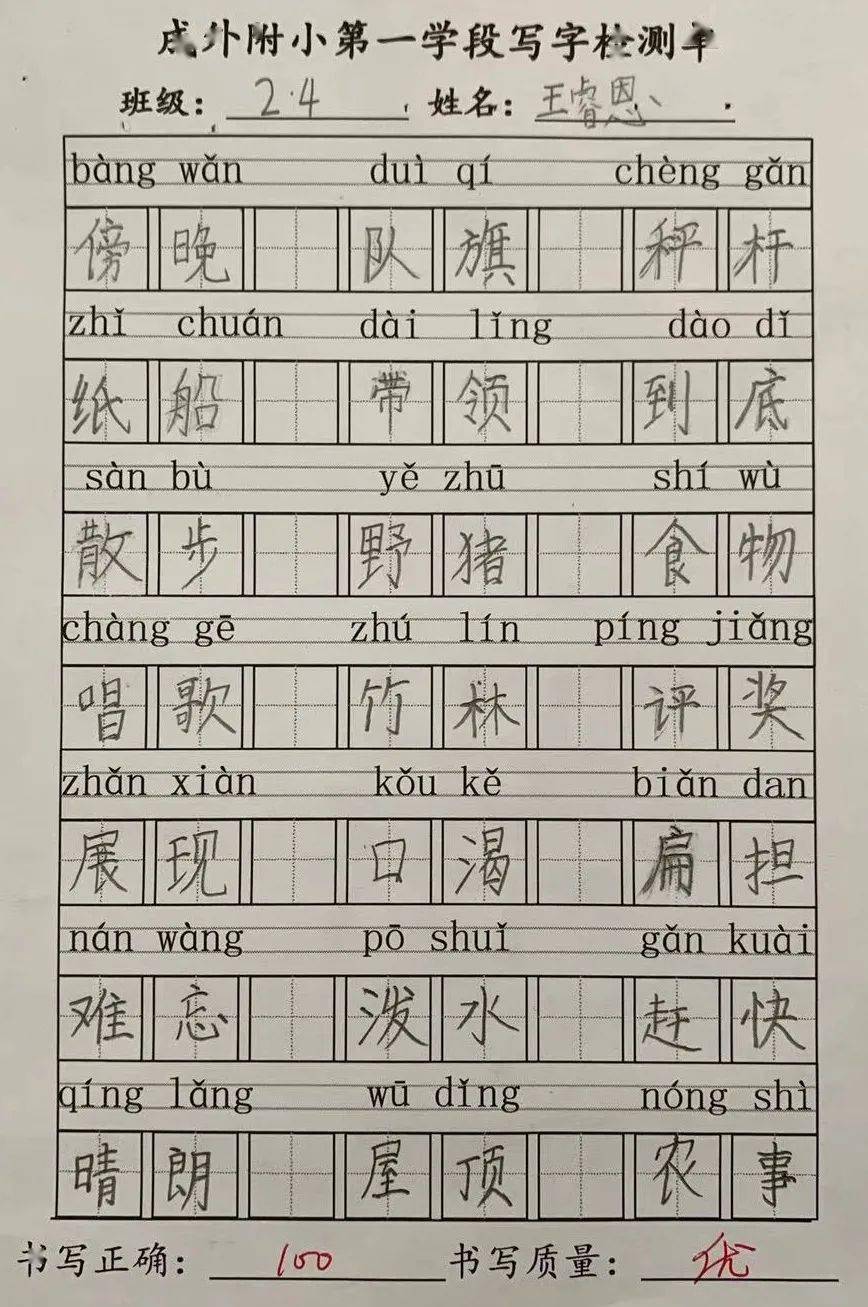 成外附小第一学段写字检测单
班级： 2.4 姓名： 王睿恩
bàng wǎn duì qí chèng gǎn
傍晚 队旗 秤杆
zhǐ chuán dài lǐng dào dǐ
纸船 带领 到底
sàn bù yě zhū shí wù
散步 野猪 食物
chàng gē zhú lín píng jiǎng
唱歌 竹林 评奖
zhǎn xiàn kǒu kě biǎn dan
展现 口渴 扁担
nán wàng pō shuǐ gǎn kuài
难忘 泼水 赶快
qíng lǎng wū dǐng nóng shì
晴朗 屋顶 农事
书写正确： 100 书写质量： 优